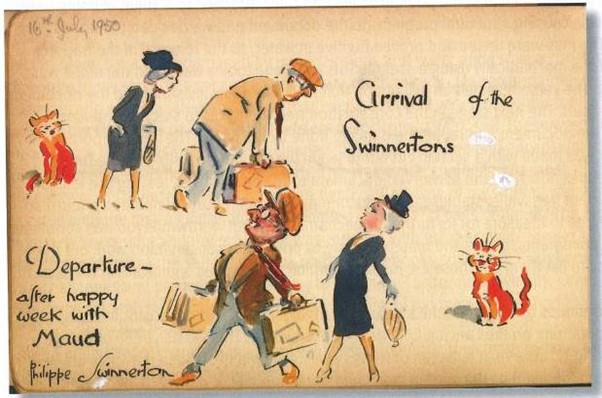 16th July 1950
Arrival of the
Swinnertons
Departure –
after happy
week with
Maud
Philippe Swinnerton